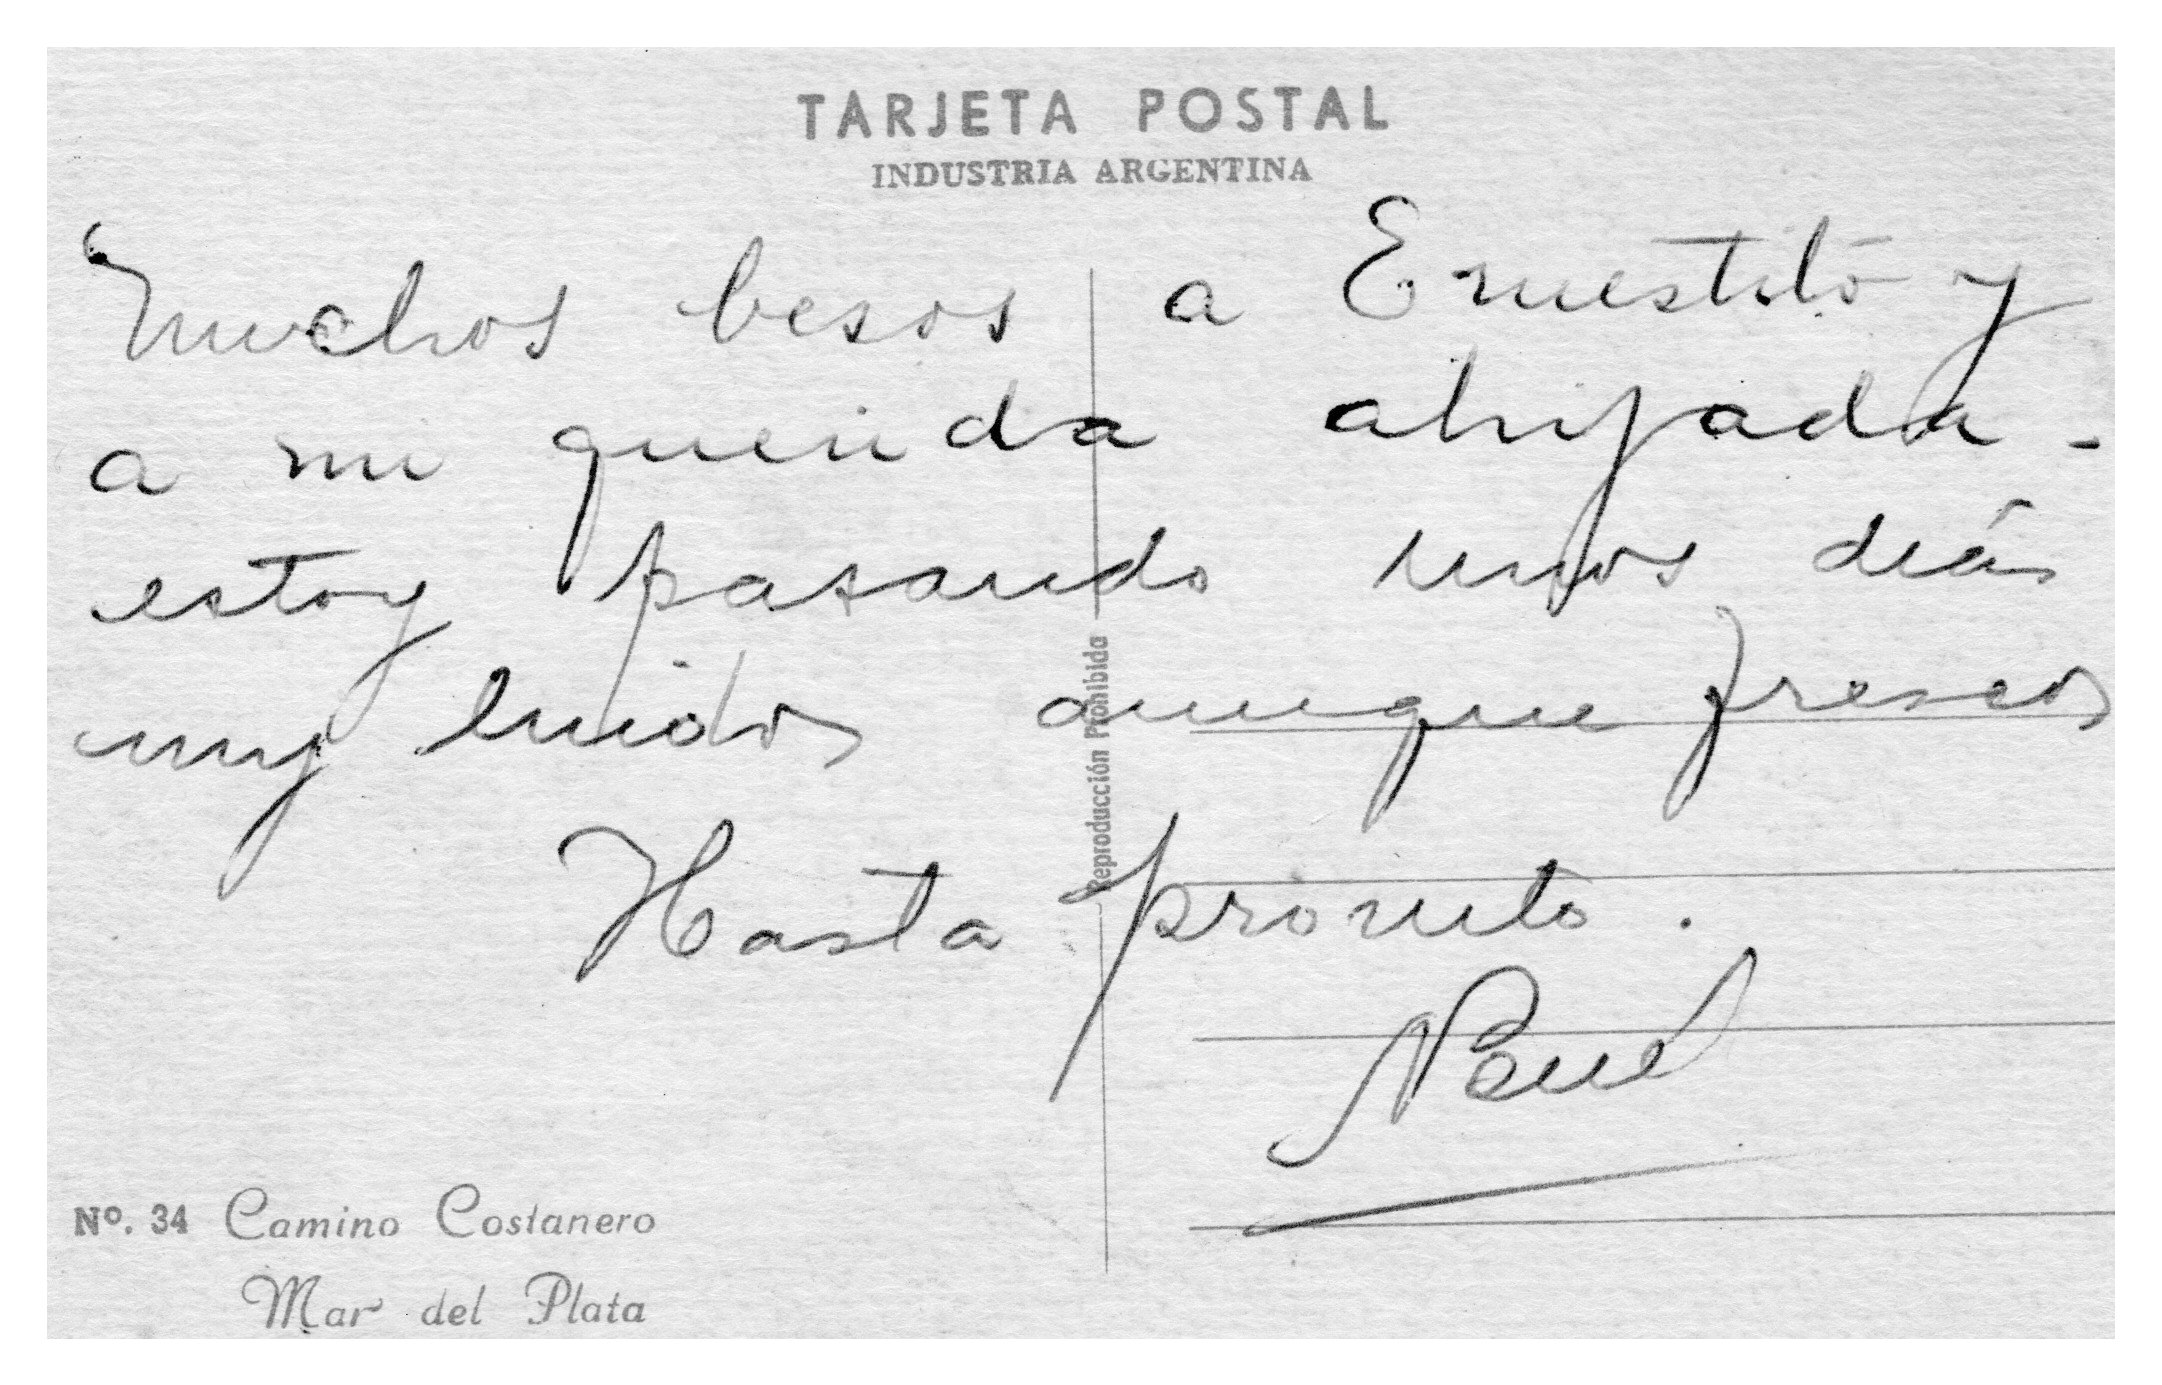 TARJETA POSTAL
INDUSTRIA ARGENTINA
Muchos besos a Ernestito y
a mi querida ahijada -
estoy pasando unos días
muy lindos aunque frescos
Hasta pronto.
Reproducción Prohibida
Nº. 34 Camino Costanero
Mar del Plata